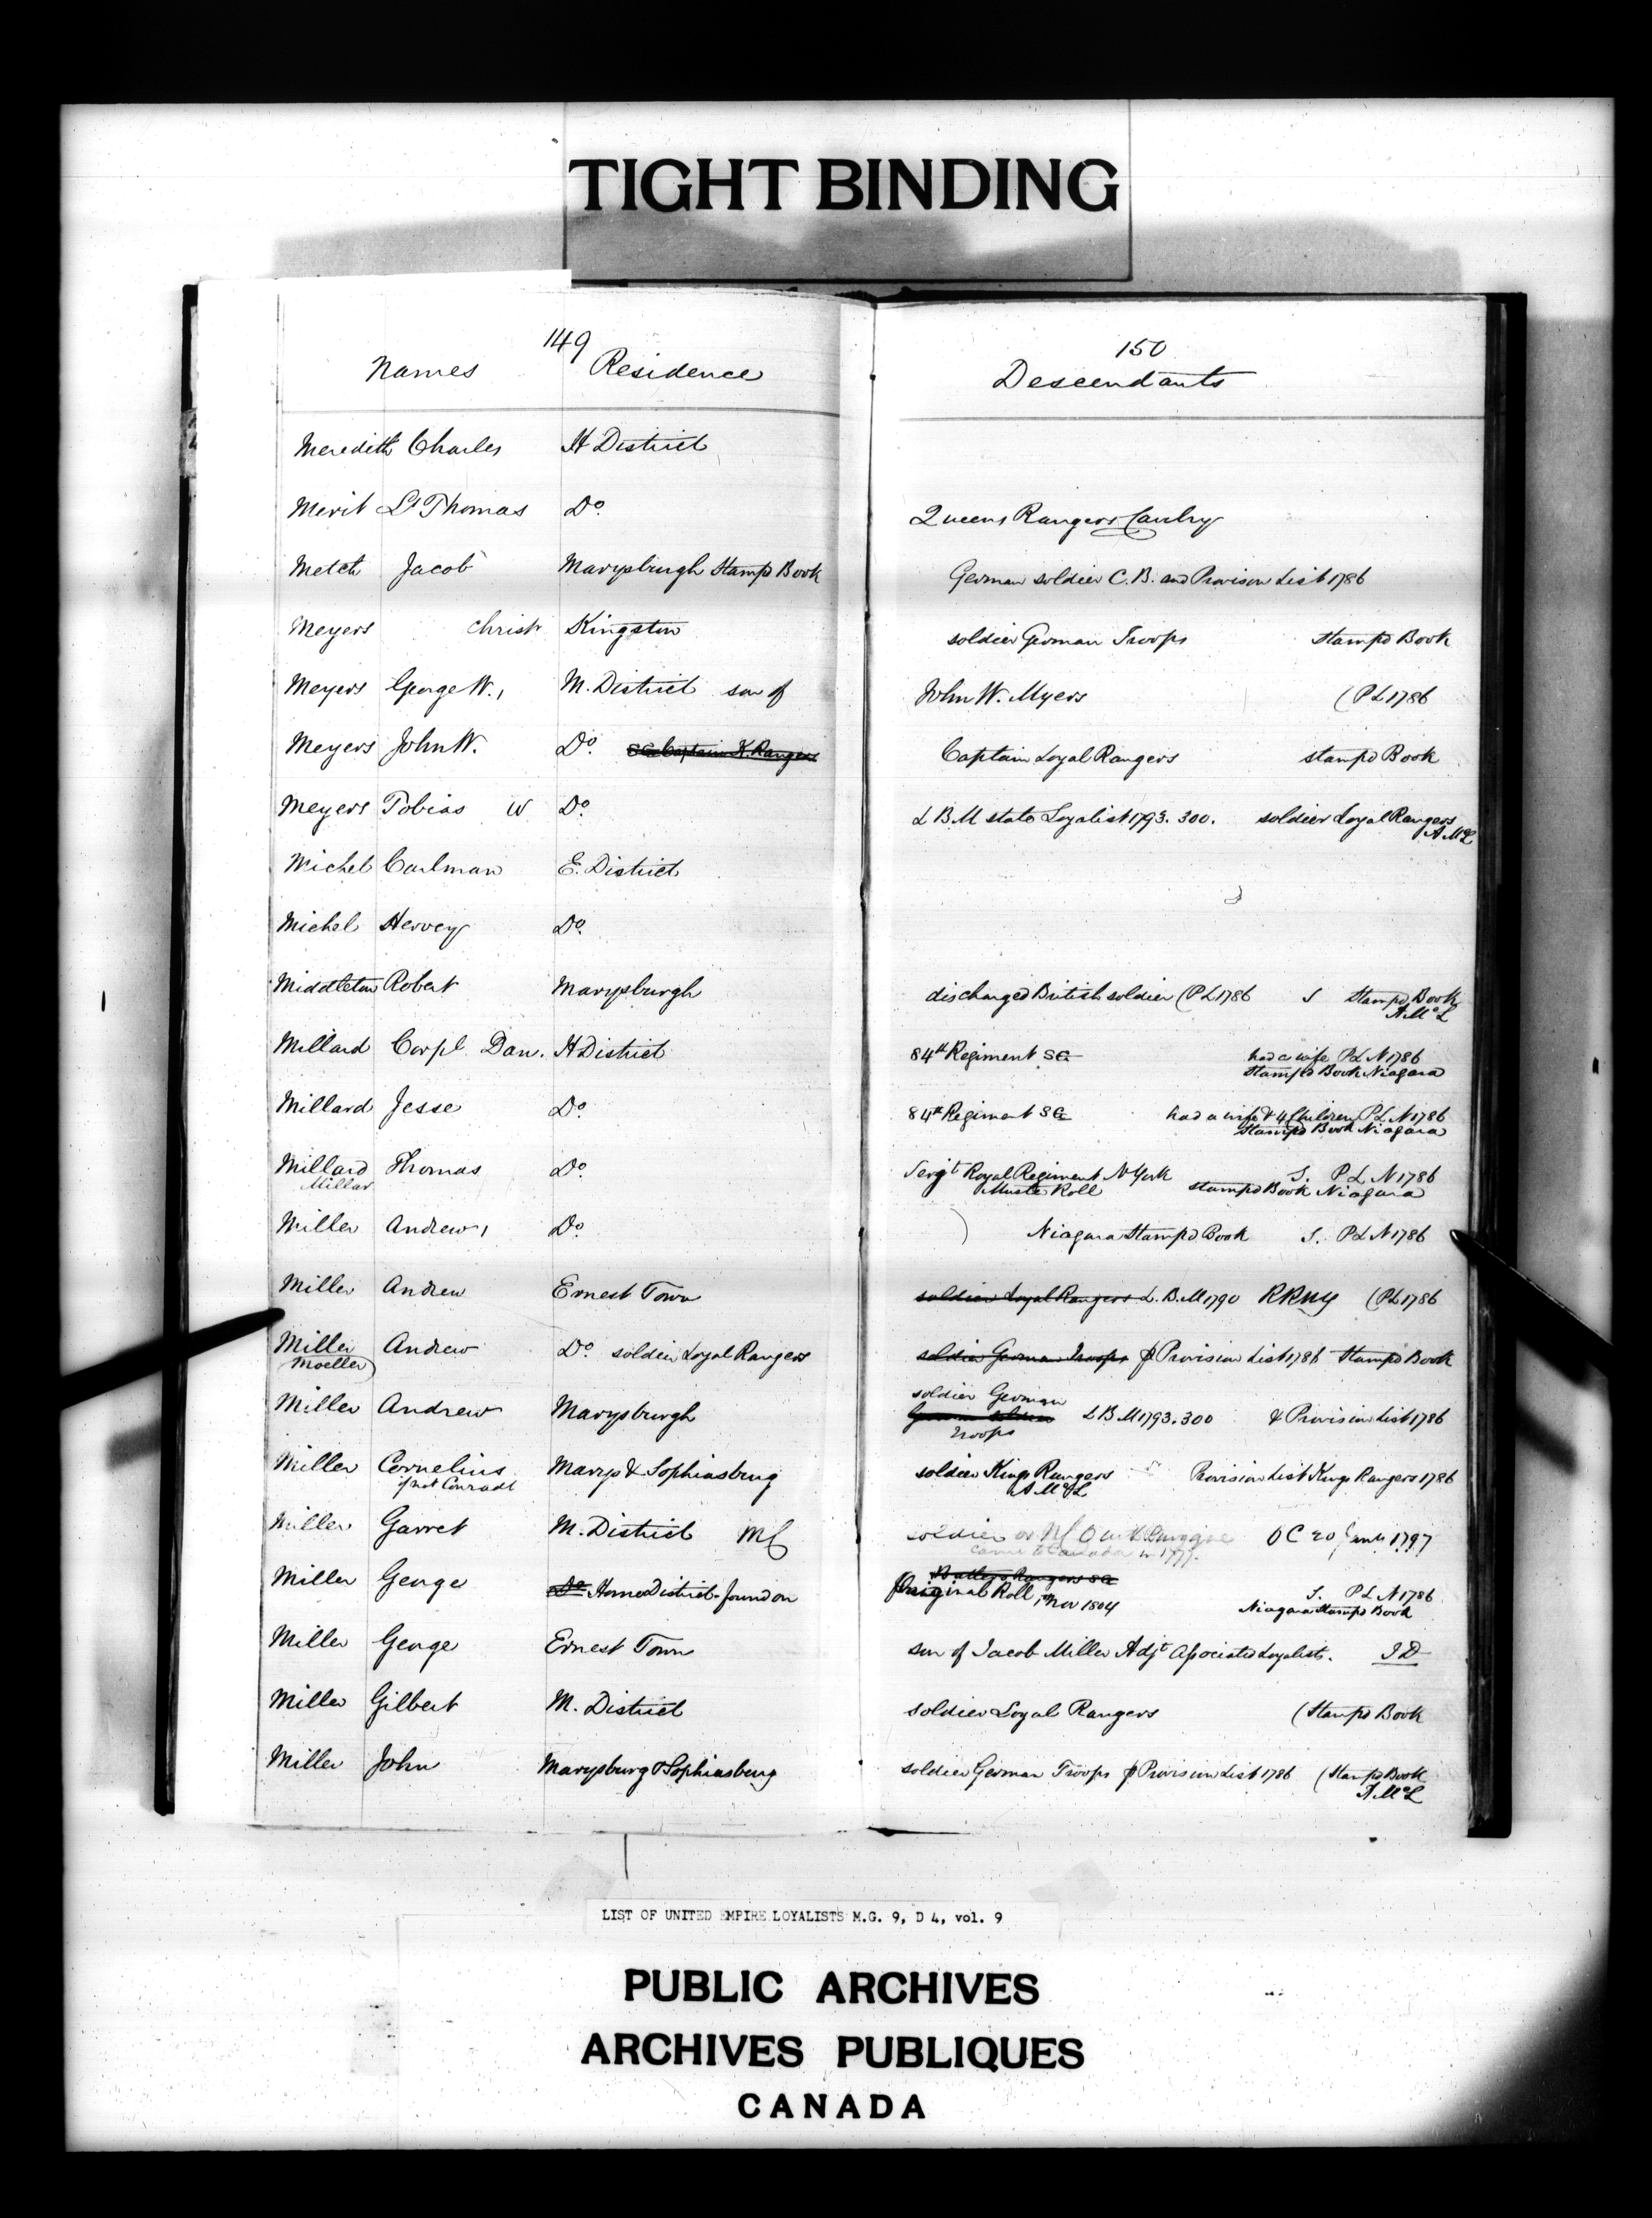 TIGHT BINDING
149
Names Residence
150
Descendants
Meredith Charles H District
Merit Lt Thomas Do. Queens Rangers Cavlry
Metch Jacob Marysburgh Stamp'd Book German soldier C.B. and Provision List 1786
Meyers Christ Kingston soldier German Troops Stamp'd Book
Meyers George W., M. District son of John W. Myers (PL 1786
Meyers John W. Do. SG Captain K. Rangers Captain Loyal Rangers stamp'd Book
Meyers Tobias W Do. L B.M state Loyalist 1793. 300. soldier Loyal Rangers
A McL
Michel Carlman E. District
Michel Hervey Do.
Middleton Robert Marysburgh discharged British soldier (PL 1786 S Stamp'd Book
A McL
Millard Corpl Dan. H District 84th Regiment SG had a wife PL N 1786
Stamp'd Book Niagara
Millard Jesse Do. 84th Regiment SG had a wife & 4 Children PL N 1786
Stamp'd Book Niagara
Millard Thomas Do. Sergt Royal Regiment N York S. PL N 1786
Millar Muster Roll stamp'd Book Niagara
Miller Andrew, Do. ) Niagara Stamp'd Book S. PL N 1786
Miller Andrew Ernest Town soldier Loyal Rangers L. B. M 1790 RRNY (PL 1786
Miller Andrew Do. soldier Loyal Rangers soldier German Troops & Provision List 1786 Stamp'd Book
(Moeller)
soldier German
Miller Andrew Marysburgh German soldier L B M 1793. 300 & Provision List 1786
Troops
Miller Cornelius Marys & Sophiasburg soldier Kings Rangers Provision List Kings Rangers 1786
if not Conradt A McL
Miller Garret M. District MC soldier or OC 20 June 1797
came to Canada in 1777.
Butlers Rangers SG
Miller George Do. Home District - found on Original Roll 1st Nov 1804 S. PL N 1786
Niagara Stamp'd Book
Miller George Ernest Town son of Jacob Miller Adjt Associated Loyalists. J D
Miller Gilbert M. District soldier Loyal Rangers (Stamp'd Book
Miller John Marysburg & Sophiasburg soldier German Troops & Provision List 1786 (Stamp'd Book
A McL
LIST OF UNITED EMPIRE LOYALISTS M.G. 9, D 4, vol. 9
PUBLIC ARCHIVES
ARCHIVES PUBLIQUES
CANADA